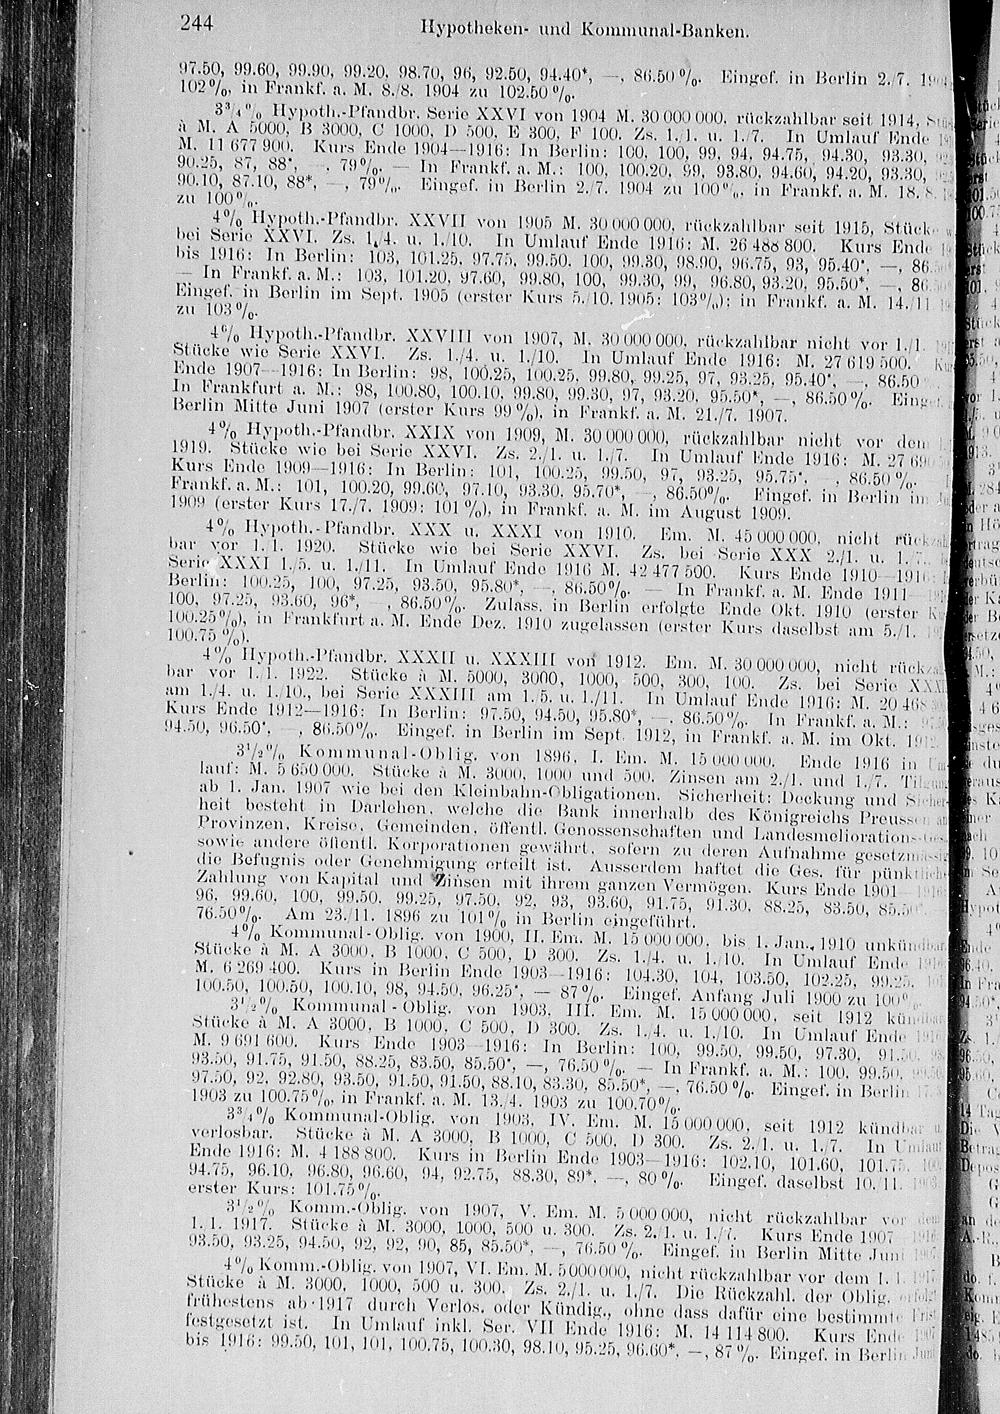 244 Hypotheken- und Kommunal-Banken.
97.50, 99.60, 99.90, 99.20, 98.70, 96, 92.50, 94.40*, —, 86.50%. Eingef. in Berlin 2./7.
102%, in Frankf. a. M. 8./8. 1904 zu 102.50%.
3¾% Hypoth.-Pfandbr. Serie XXVI von 1904 M. 30 000 000, rückzahlbar seit 1914,
à M. A 5000, B 3000, C 1000, D 500, E 300, F 100. Zs. 1./1. u. 1./7. In Umlauf Ende
M. 11 677 900. Kurs Ende 1904—1916: In Berlin: 100, 100, 99, 94, 94.75, 94.30, 93.30,
90.25, 87, 88*, —, 79%. — In Frankf. a. M.: 100, 100.20, 99, 93.80, 94.60, 94.20, 93.30,
90.10, 87.10, 88*, —, 79%. Eingef. in Berlin 2./7. 1904 zu 100%, in Frankf. a. M. 18./8.
zu 100%.
4% Hypoth.-Pfandbr. XXVII von 1905 M. 30 000 000, rückzahlbar seit 1915, Stücke
bei Serie XXVI. Zs. 1./4. u. 1./10. In Umlauf Ende 1916: M. 26 488 800. Kurs Ende
bis 1916: In Berlin: 103, 101.25, 97.75, 99.50, 100, 99.30, 98.90, 96.75, 93, 95.40*, —,
— In Frankf. a. M.: 103, 101.20, 97.60, 99.80, 100, 99.30, 99, 96.80, 93.20, 95.50*, —,
Eingef. in Berlin im Sept. 1905 (erster Kurs 5./10. 1905: 103%); in Frankf. a. M. 14./11.
zu 103%.
4% Hypoth.-Pfandbr. XXVIII von 1907, M. 30 000 000, rückzahlbar nicht vor 1./1.
Stücke wie Serie XXVI. Zs. 1./4. u. 1./10. In Umlauf Ende 1916: M. 27 619 500.
Ende 1907—1916: In Berlin: 98, 100.25, 100.25, 99.80, 99.25, 97, 93.25, 95.40*, —, 86.50
In Frankfurt a. M.: 98, 100.80, 100.10, 99.80, 99.30, 97, 93.20, 95.50*, —, 86.50%.
Berlin Mitte Juni 1907 (erster Kurs 99%), in Frankf. a. M. 21./7. 1907.
4% Hypoth.-Pfandbr. XXIX von 1909, M. 30 000 000, rückzahlbar nicht vor dem
1919. Stücke wie bei Serie XXVI. Zs. 2./1. u. 1./7. In Umlauf Ende 1916:
Kurs Ende 1909—1916: In Berlin: 101, 100.25, 99.50, 97, 93.25, 95.75*, —, 86.50%.
Frankf. a. M.: 101, 100.20, 99.60, 97.10, 93.30, 95.70*, —, 86.50%. Eingef. in Berlin im
1909 (erster Kurs 17./7. 1909: 101%), in Frankf. a. M. im August 1909.
4% Hypoth.-Pfandbr. XXX u. XXXI von 1910. Em. M. 45 000 000, nicht rückzahl-
bar vor 1./1. 1920. Stücke wie bei Serie XXVI. Zs. bei Serie XXX 2./1. u. 1./7.
Serie XXXI 1./5. u. 1./11. In Umlauf Ende 1916 M. 42 477 500. Kurs Ende 1910—1916:
Berlin: 100.25, 100, 97.25, 93.50, 95.80*, —, 86.50%. — In Frankf. a. M. Ende 1911
100, 97.25, 93.60, 96*, —, 86.50%. Zulass. in Berlin erfolgte Ende Okt. 1910 (erster
100.25%), in Frankfurt a. M. Ende Dez. 1910 zugelassen (erster Kurs daselbst am 5./1.
100.75%).
4% Hypoth.-Pfandbr. XXXII u. XXXIII von 1912. Em. M. 30 000 000, nicht rückza
bar vor 1./1. 1922. Stücke à M. 5000, 3000, 1000, 500, 300, 100. Zs. bei Serie
am 1./4. u. 1./10., bei Serie XXXIII am 1./5. u. 1./11. In Umlauf Ende 1916: M.
Kurs Ende 1912—1916: In Berlin: 97.50, 94.50, 95.80*, —, 86.50%. In Frankf. a. M.:
94.50, 96.50*, —, 86.50%. Eingef. in Berlin im Sept. 1912, in Frankf. a. M. im Okt.
3½% Kommunal-Oblig. von 1896, I. Em. M. 15 000 000. Ende 1916 in Um-
lauf: M. 5 650 000. Stücke à M. 3000, 1000 und 500. Zinsen am 2./1. und 1./7. Tilgung
ab 1. Jan. 1907 wie bei den Kleinbahn-Obligationen. Sicherheit: Deckung und Sicher-
heit besteht in Darlehen, welche die Bank innerhalb des Königreichs Preussen an
Provinzen, Kreise, Gemeinden, öffentl. Genossenschaften und Landesmeliorations-
sowie andere öffentl. Korporationen gewährt, sofern zu deren Aufnahme gesetzmässig
die Befugnis oder Genehmigung erteilt ist. Ausserdem haftet die Ges. für pünktliche
Zahlung von Kapital und Zinsen mit ihrem ganzen Vermögen. Kurs Ende 1901
96, 99.60, 100, 99.50, 99.25, 97.50, 92, 93, 93.60, 91.75, 91.30, 88.25, 83.50,
76.50%. Am 23./11. 1896 zu 101% in Berlin eingeführt.
4% Kommunal-Oblig. von 1900, II. Em. M. 15 000 000, bis 1. Jan. 1910 unkündbar
Stücke à M. A 3000, B 1000, C 500, D 300. Zs. 1./4. u. 1./10. In Umlauf Ende
M. 6 269 400. Kurs in Berlin Ende 1903—1916: 104.30, 104, 103.50, 102.25, 99.25,
100.50, 100.50, 100.10, 98, 94.50, 96.25*, — 87%. Eingef. Anfang Juli 1900 zu 100%.
3½% Kommunal-Oblig. von 1903, III. Em. M. 15 000 000, seit 1912 kündbar
Stücke à M. A 3000, B 1000, C 500, D 300. Zs. 1./4. u. 1./10. In Umlauf Ende
M. 9 691 600. Kurs Ende 1903—1916: In Berlin: 100, 99.50, 99.50, 97.30,
93.50, 91.75, 91.50, 88.25, 83.50, 85.50*, —, 76.50%. — In Frankf. a. M.: 100, 99.50,
97.50, 92, 92.80, 93.50, 91.50, 91.50, 88.10, 83.30, 85.50*, —, 76.50%. Eingef. in Berlin
1903 zu 100.75%, in Frankf. a. M. 13./4. 1903 zu 100.70%.
3¾% Kommunal-Oblig. von 1903, IV. Em. M. 15 000 000, seit 1912 kündbar u.
verlosbar. Stücke à M. A 3000, B 1000, C 500, D 300. Zs. 2./1. u. 1./7. In Umlauf
Ende 1916: M. 4 188 800. Kurs in Berlin Ende 1903—1916: 102.10, 101.60,
94.75, 96.10, 96.80, 96.60, 94, 92.75, 88.30, 89*, —, 80%. Eingef. daselbst 10./11.
erster Kurs: 101.75%.
3½% Komm.-Oblig. von 1907, V. Em. M. 5 000 000, nicht rückzahlbar vor dem
1./1. 1917. Stücke à M. 3000, 1000, 500 u. 300. Zs. 2./1. u. 1./7. Kurs Ende 1907
93.50, 93.25, 94.50, 92, 92, 90, 85, 85.50*, —, 76.50%. Eingef. in Berlin Mitte Juni
4% Komm.-Oblig. von 1907, VI. Em. M. 5 000 000, nicht rückzahlbar vor dem 1./1.
Stücke à M. 3000, 1000, 500 u. 300. Zs. 2./1. u. 1./7. Die Rückzahl. der Oblig. erfolgt
frühestens ab 1917 durch Verlos. oder Kündig., ohne dass dafür eine bestimmte Frist
festgesetzt ist. In Umlauf inkl. Ser. VII Ende 1916: M. 14 114 800. Kurs Ende
bis 1916: 99.50, 101, 101, 100.75, 100.30, 98.10, 95.25, 96.60*, —, 87%. Eingef. in Berlin